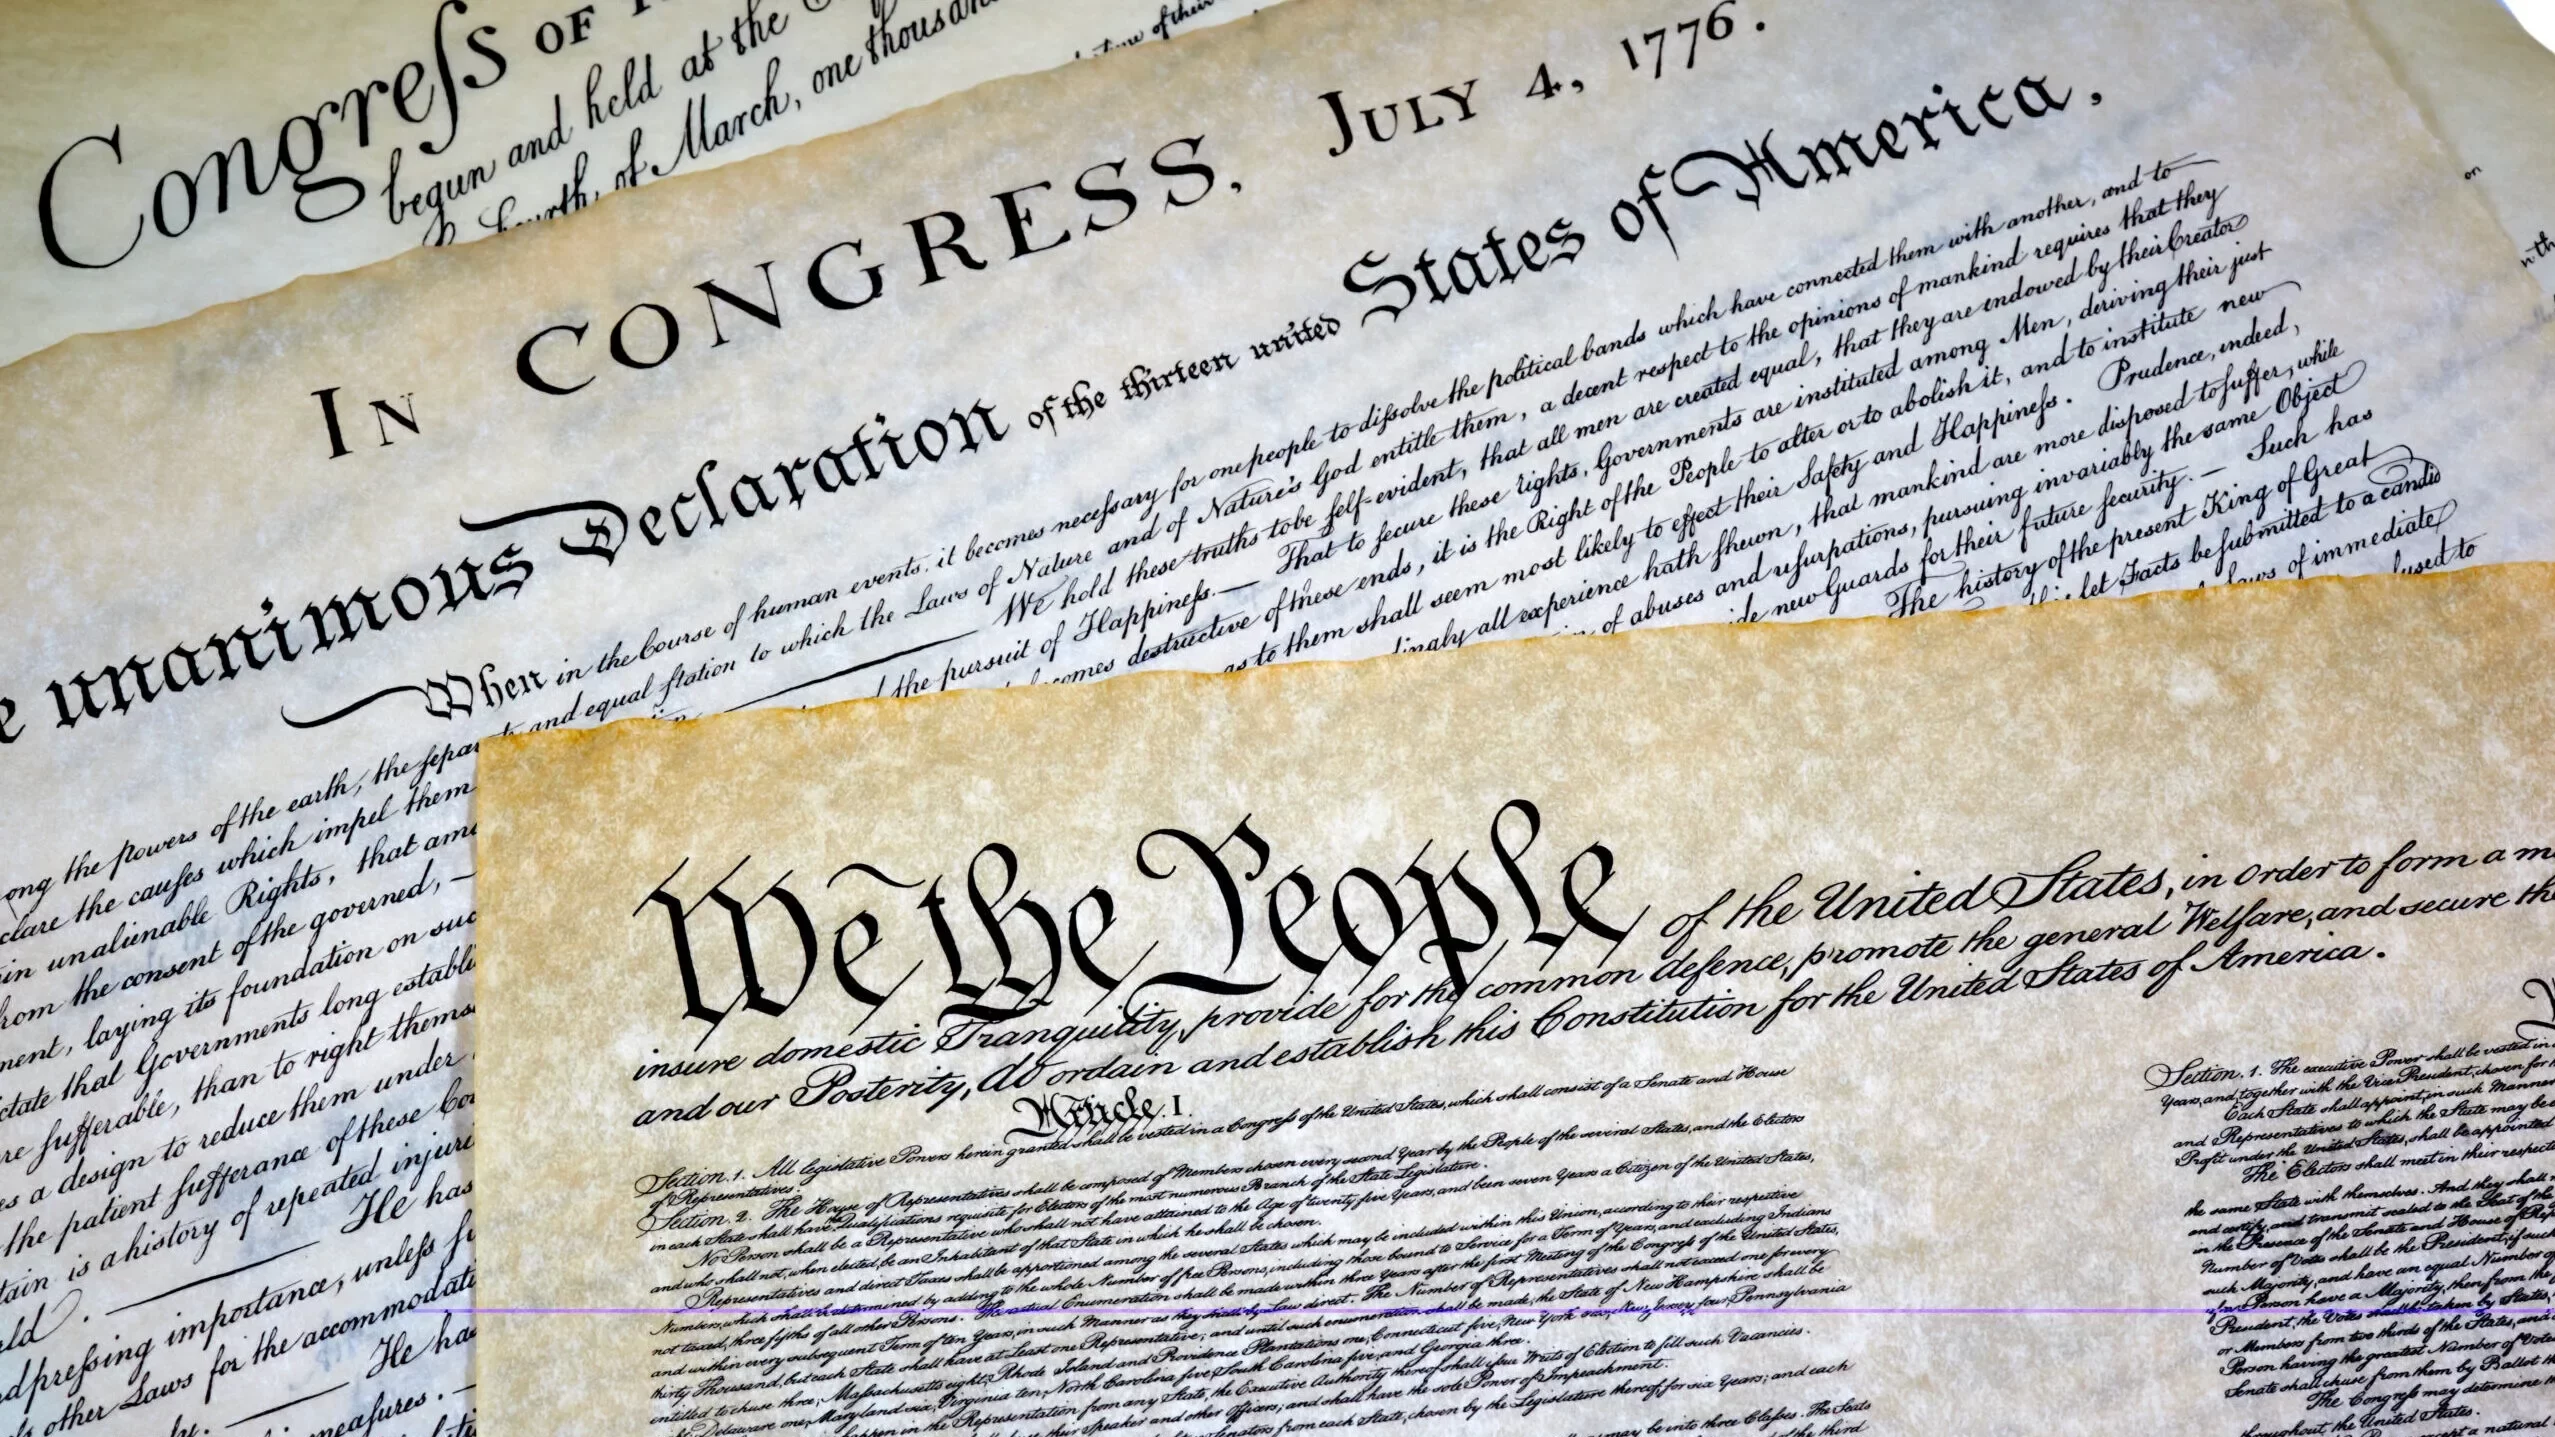 Congreſs OF
begun and held at the
Fourth, of March, one thousand
time of their
on
IN CONGRESS, JULY 4, 1776.
unanimous Declaration of the thirteen united States of America,
When in the Course of human events, it becomes neceſsary for one people to diſsolve the political bands which have connected them with another, and to
ong the powers of the earth, the ſepar and equal ſtation to which the Laws of Nature and of Nature's God entitle them, a decent respect to the opinions of mankind requires that they
clare the causes which impel them We hold these truths to be ſelf-evident, that all men are created equal, that they are endowed by their Creator
in unalienable Rights, that am the pursuit of Happineſs.— That to ſecure these rights, Governments are instituted among Men, deriving their just
rom the consent of the governed, — comes destructive of these ends, it is the Right of the People to alter or to abolish it, and to institute new
ment, laying its foundation on suc as to them shall seem most likely to effect their Safety and Happineſs. Prudence, indeed,
ctate that Governments long establi dingly all experience hath ſhewn, that mankind are more disposed to ſuffer, while
re ſufferable, than to right thems of abuses and uſurpations, pursuing invariably the same Object
es a design to reduce them under ide new Guards for their future ſecurity.— Such has
the patient ſufferance of these Co The history of the present King of Great
tain is a history of repeated injuri let Facts be ſubmitted to a candid
ld. He has laws of immediate
dpreſsing importance, unleſs ſ used to
other Laws for the accommodat
ly. He ha
meaſures. —
We the People of the United States, in Order to form a m
insure domestic Tranquility, provide for the common defence, promote the general Welfare, and secure th
and our Posterity, do ordain and establish this Constitution for the United States of America.
Article. I.
Section. 1. All legislative Powers herein granted shall be vested in a Congreſs of the United States, which shall consist of a Senate and House
of Representatives.
Section. 2. The House of Representatives shall be composed of Members chosen every second Year by the People of the several States, and the Electors
in each State shall have the Qualifications requisite for Electors of the most numerous Branch of the State Legislature.
No Person shall be a Representative who shall not have attained to the Age of twenty five Years, and been seven Years a Citizen of the United States,
and who shall not, when elected, be an Inhabitant of that State in which he shall be chosen.
Representatives and direct Taxes shall be apportioned among the several States which may be included within this Union, according to their respective
Numbers, which shall be determined by adding to the whole Number of free Persons, including those bound to Service for a Term of Years, and excluding Indians
not taxed, three fifths of all other Persons. The actual Enumeration shall be made within three Years after the first Meeting of the Congreſs of the United States,
and within every subsequent Term of ten Years, in such Manner as they shall by Law direct. The Number of Representatives shall not exceed one for every
thirty Thousand, but each State shall have at Least one Representative; and until such enumeration shall be made, the State of New Hampshire shall be
entitled to chuse three, Maſsachusetts eight, Rhode Island and Providence Plantations one, Connecticut five, New York six, New Jersey four, Pennsylvania
eight, Delaware one, Maryland six, Virginia ten, North Carolina five, South Carolina five, and Georgia three.
happen in the Representation from any State, the Executive Authority thereof shall iſsue Writs of Election to fill such Vacancies.
their Speaker and other Officers; and shall have the sole Power of Impeachment.
Senators from each State, chosen by the Legislature thereof, for six Years; and each
may be into three Claſses. The Seats
of the third
Section. 1. The executive Power shall be vested in
Years, and, together with the Vice President, chosen for
Each State shall appoint, in such Manner
and Representatives to which the State may be
Profit under the United States, shall be appointed
The Electors shall meet in their respecti
the same State with themselves. And they shall
and certify, and transmit sealed to the Seat of the
in the Presence of the Senate and House of Rep
Number of Votes shall be the President, if such
such Majority, and have an equal Number o
Person have a Majority, then from the
President, the Votes shall be taken by States,
or Members from two thirds of the States, and
Person having the greatest Number of Votes
Senate shall chuse from them by Ballot th
The Congreſs may determine th
throughout the United States.
except a natural